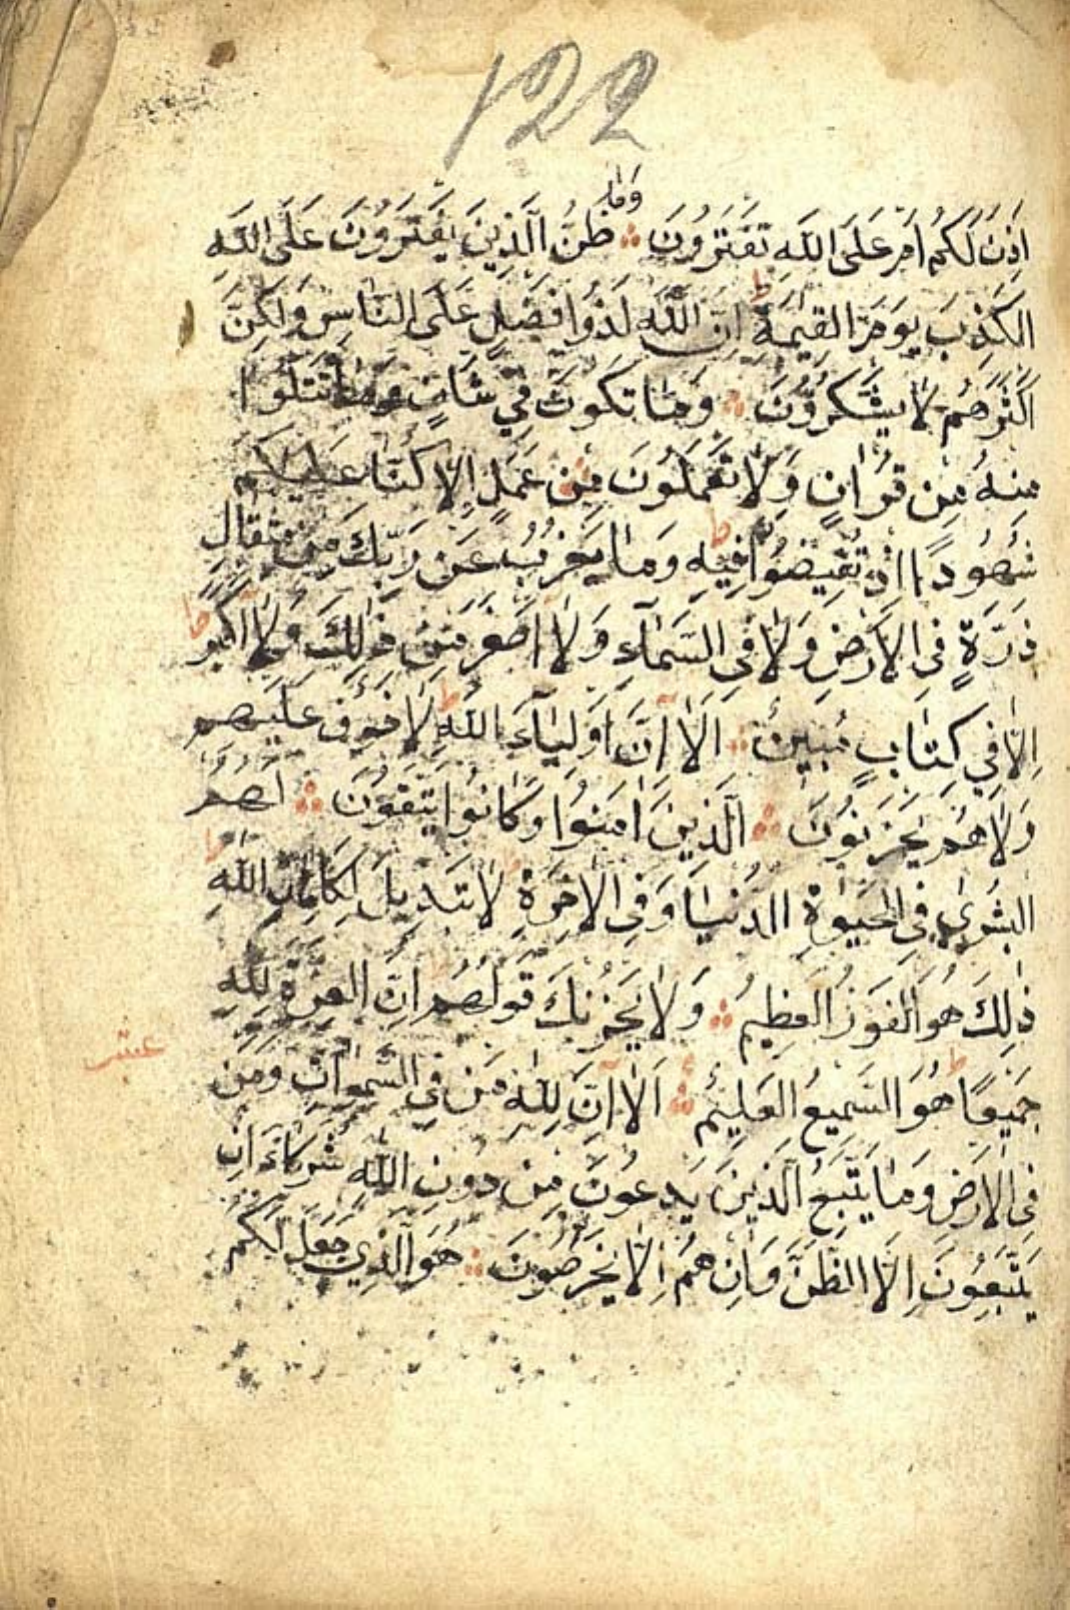 122
وَمَا
اَذِنَ لَكُمْ اَمْ عَلَى اللّٰهِ تَفْتَرُونَ ۞ ظَنُّ الَّذِينَ يَفْتَرُونَ عَلَى اللّٰهِ
الْكَذِبَ يَوْمَ الْقِيٰمَةِ ط اِنَّ اللّٰهَ لَذُوا فَضْلٍ عَلَى النَّاسِ وَلٰكِنَّ
اَكْثَرَهُمْ لَا يَشْكُرُونَ ۞ وَمَا تَكُونُ فِي شَانٍ وَمَا تَتْلُوا
مِنْهُ مِنْ قُرْاٰنٍ وَلَا تَعْمَلُونَ مِنْ عَمَلٍ اِلَّا كُنَّا عَلَيْكُمْ
شُهُودًا اِذْ تُفِيضُوْنَ فِيْهِ ط وَمَا يَعْزُبُ عَنْ رَبِّكَ مِنْ مِثْقَالِ
ذَرَّةٍ فِي الْاَرْضِ وَلَا فِي السَّمَآءِ وَلَا اَصْغَرَ مِنْ ذٰلِكَ وَلَا اَكْبَرَ ط
اِلَّا فِي كِتَابٍ مُبِينٍ ۞ اَلَا اِنَّ اَوْلِيَآءَ اللّٰهِ ط لَا خَوْفٌ عَلَيْهِمْ
وَلَا هُمْ يَحْزَنُونَ ۞ اَلَّذِينَ اٰمَنُوا وَكَانُوا يَتَّقُونَ ۞ لَهُمُ
الْبُشْرٰي فِي الْحَيٰوةِ الدُّنْيَا وَفِي الْاٰخِرَةِ لَا تَبْدِيلَ لِكَلِمَاتِ اللّٰهِ ط
ذٰلِكَ هُوَ الْفَوْزُ الْعَظِيمُ ۞ وَلَا يَحْزُنْكَ قَوْلُهُمْ اِنَّ الْعِزَّةَ لِلّٰهِ
جَمِيعًا ط هُوَ السَّمِيعُ الْعَلِيمُ ۞ اَلَا اِنَّ لِلّٰهِ مَنْ فِي السَّمٰوَاتِ وَمَنْ
فِي الْاَرْضِ وَمَا يَتَّبِعُ الَّذِينَ يَدْعُونَ مِنْ دُونِ اللّٰهِ شُرَكَاءَ اِنْ
يَتَّبِعُونَ اِلَّا الظَّنَّ وَاِنْ هُمْ اِلَّا يَخْرُصُونَ ۞ هُوَ الَّذِي جَعَلَ لَكُمُ